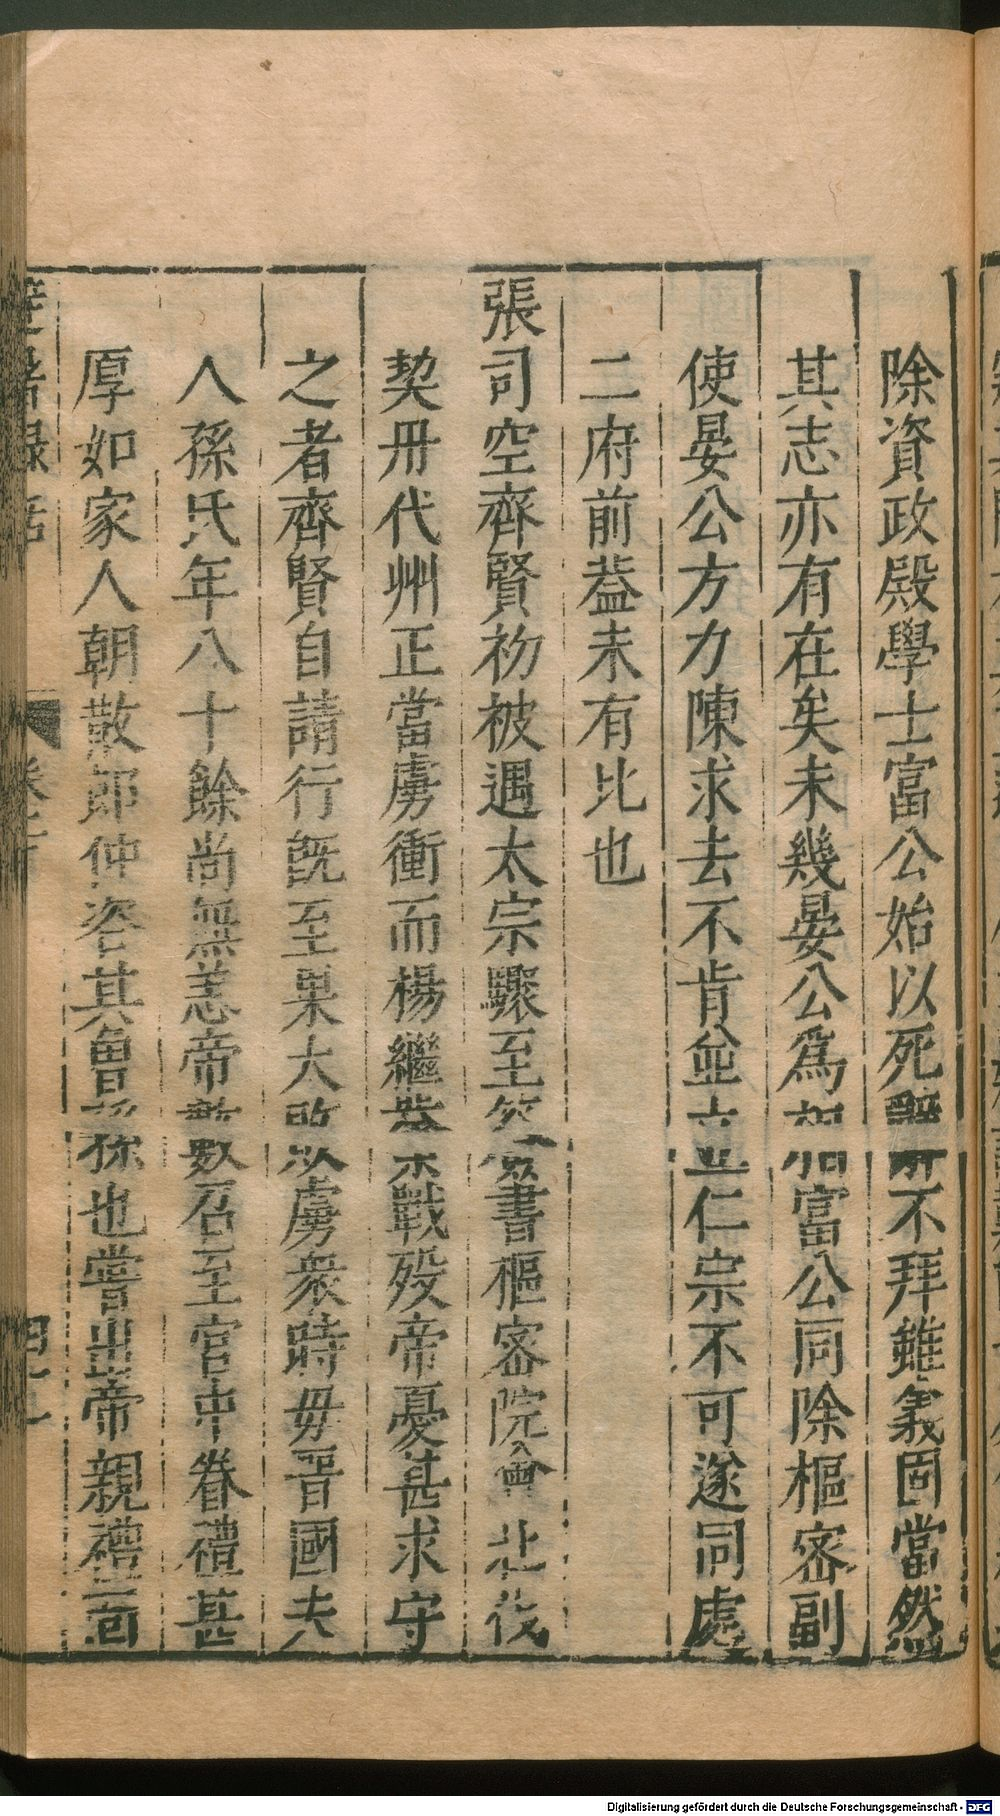 除資政殿學士富公始以死辭不拜雖義固當然
其志亦有在矣未幾晏公爲相富公同除樞密副
使晏公方力陳求去不肯並立仁宗不可遂同處
二府前葢未有比也
張司空齊賢初被遇太宗驟至簽書樞密院會北伐
契丹代州正當虜衝而楊繼業戰歿帝憂甚求守
之者齊賢自請行旣至果大敗虜衆時母晉國夫
人孫氏年八十餘尚無恙帝數召至宫中眷禮甚
厚如家人朝散郎仲容其曾孫也嘗出帝親禮
避暑録話
Digitalisierung gefördert durch die Deutsche Forschungsgemeinschaft - DFG